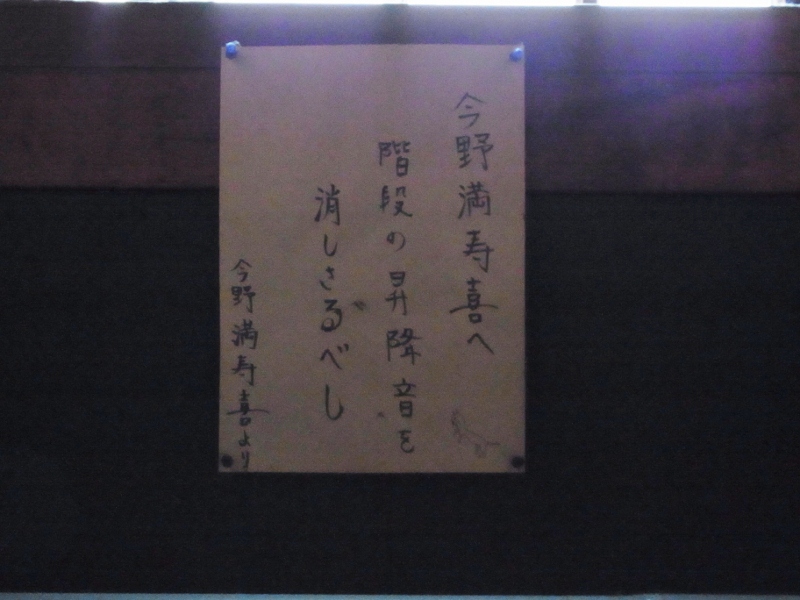 今野満寿喜へ
階段の昇降音を
消しさるべし
今野満寿喜より